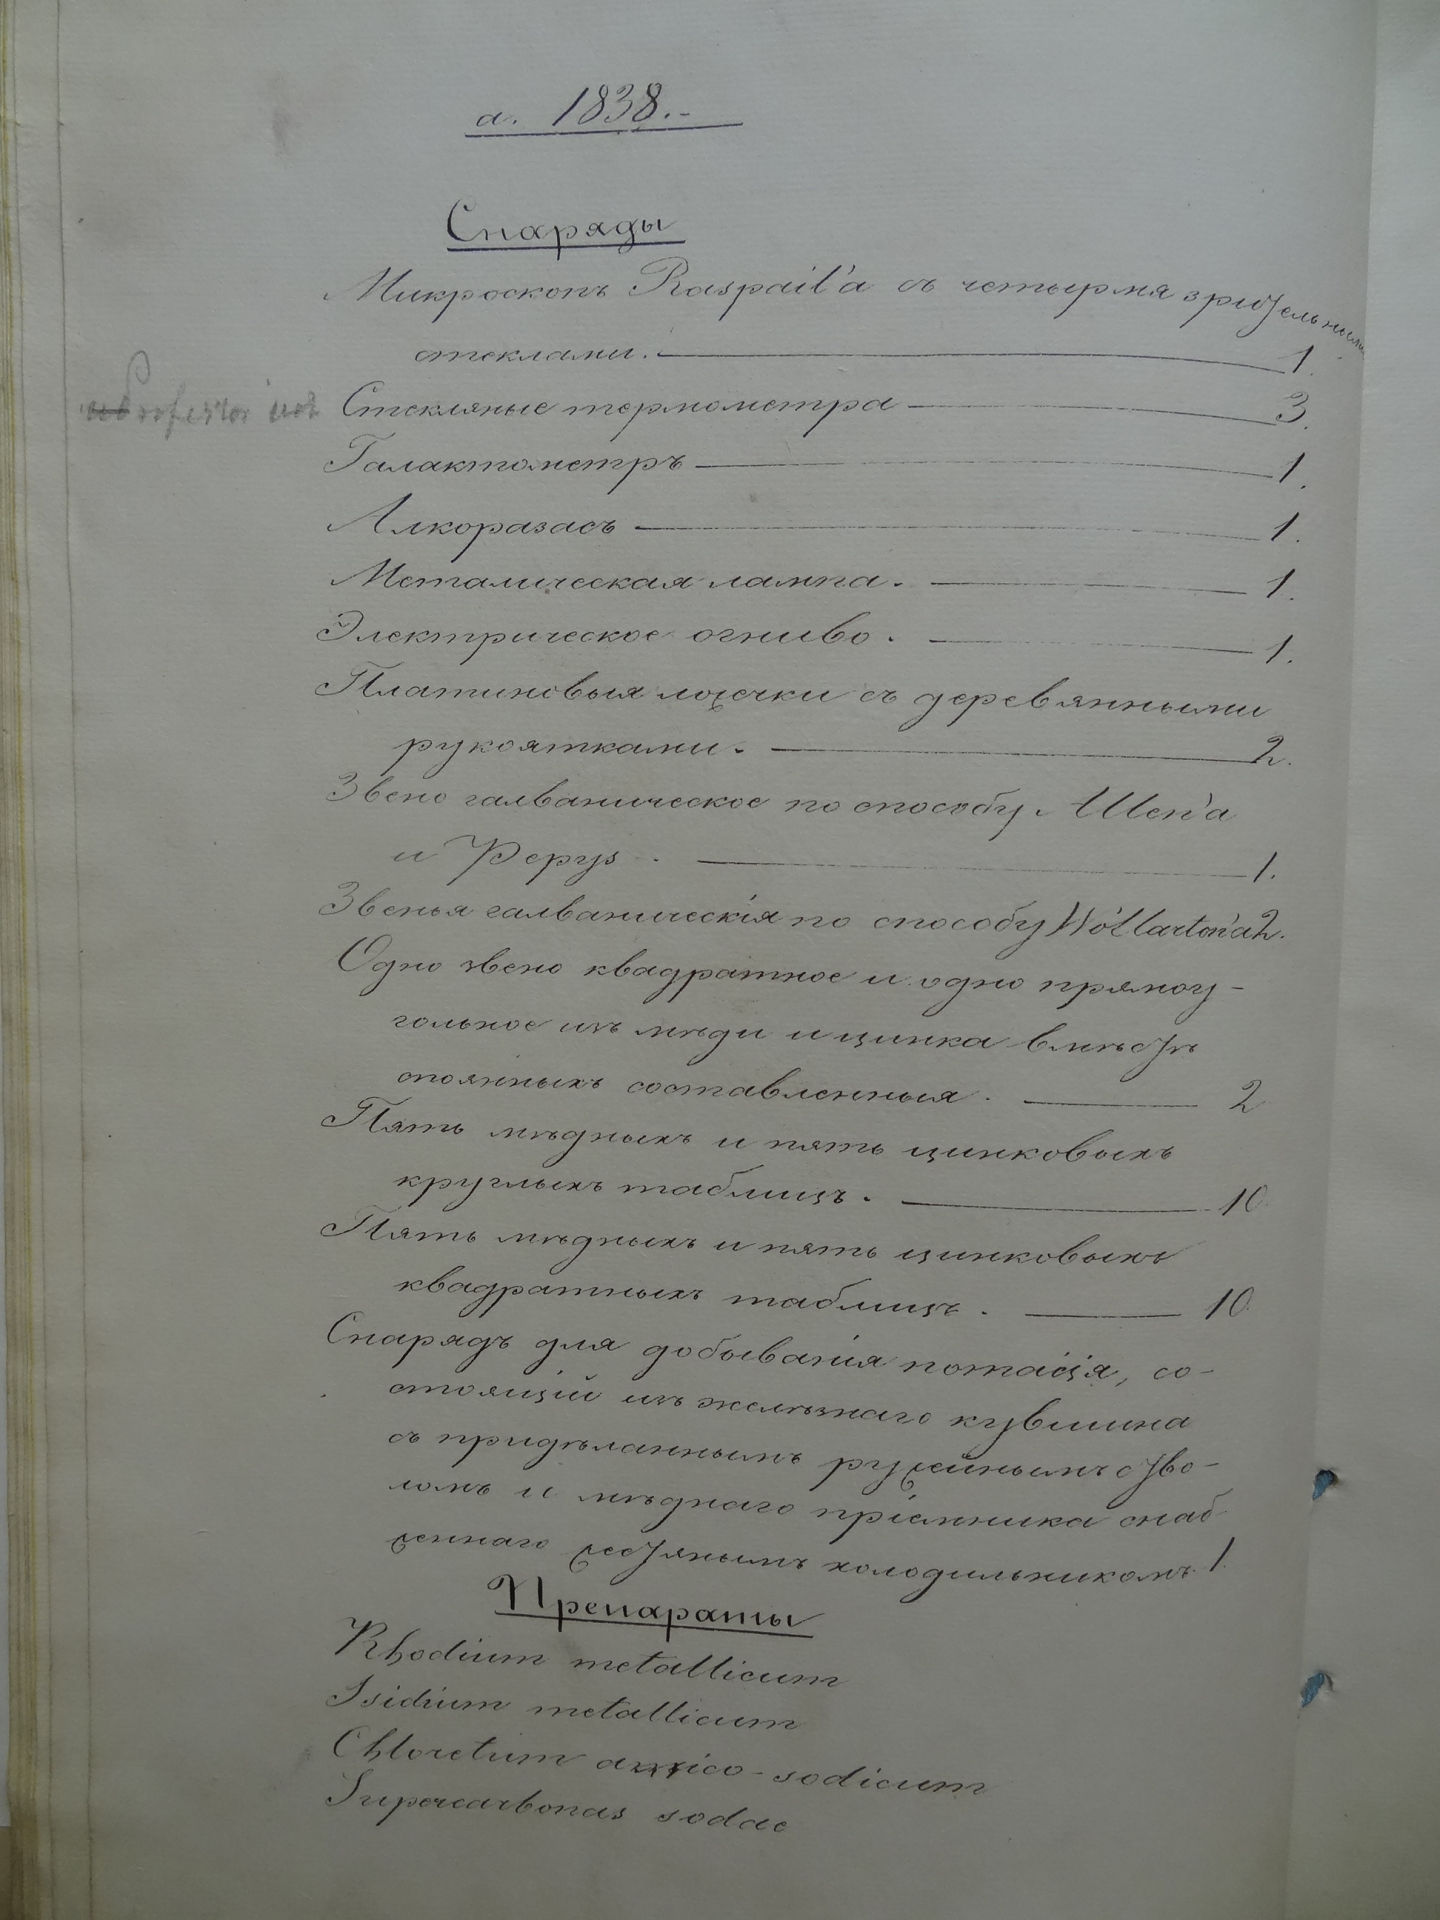 a. 1838.-
Снаряды
Микроскопъ Raspail'а съ четырмя зрительными
стеклами. 1.
Стекляные термометра 3.
Галактометръ 1.
Алкоразасъ 1.
Металическая лампа. 1.
Электрическое огниво. 1.
Платиновыя ложечки съ деревянными
рукоятками. 2.
Звено галваническое по способу
и 1.
Звенья галваническія по способу 2.
Одно звено квадратное и одно прямоу-
гольное изъ мѣди и цинка вмѣстѣ
споянныхъ составленныя. 2
Пять мѣдныхъ и пять цинковыхъ
круглыхъ таблицъ. 10.
Пять мѣдныхъ и пять цинковыхъ
квадратныхъ таблицъ. 10.
Снарядъ для добыванія потасія, со-
стоящій изъ желѣзнаго кувшина
съ придѣланнымъ ружейнымъ ство-
ломъ и мѣднаго пріемника снаб
женнаго жестянымъ холодильникомъ. 1.
Препараты
Rhodium metallicum
Isidium metallicum
Chloretum aurico-sodicum
Supercarbonas sodae